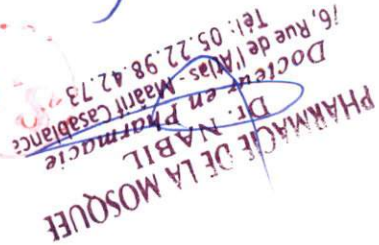 PHARMACIE DE LA MOSQUEE
Dr. NABIL
Docteur en Pharmacie
76, Rue de l'Atlas - Mâarif Casablanca
Tél: 05.22.98.42.73